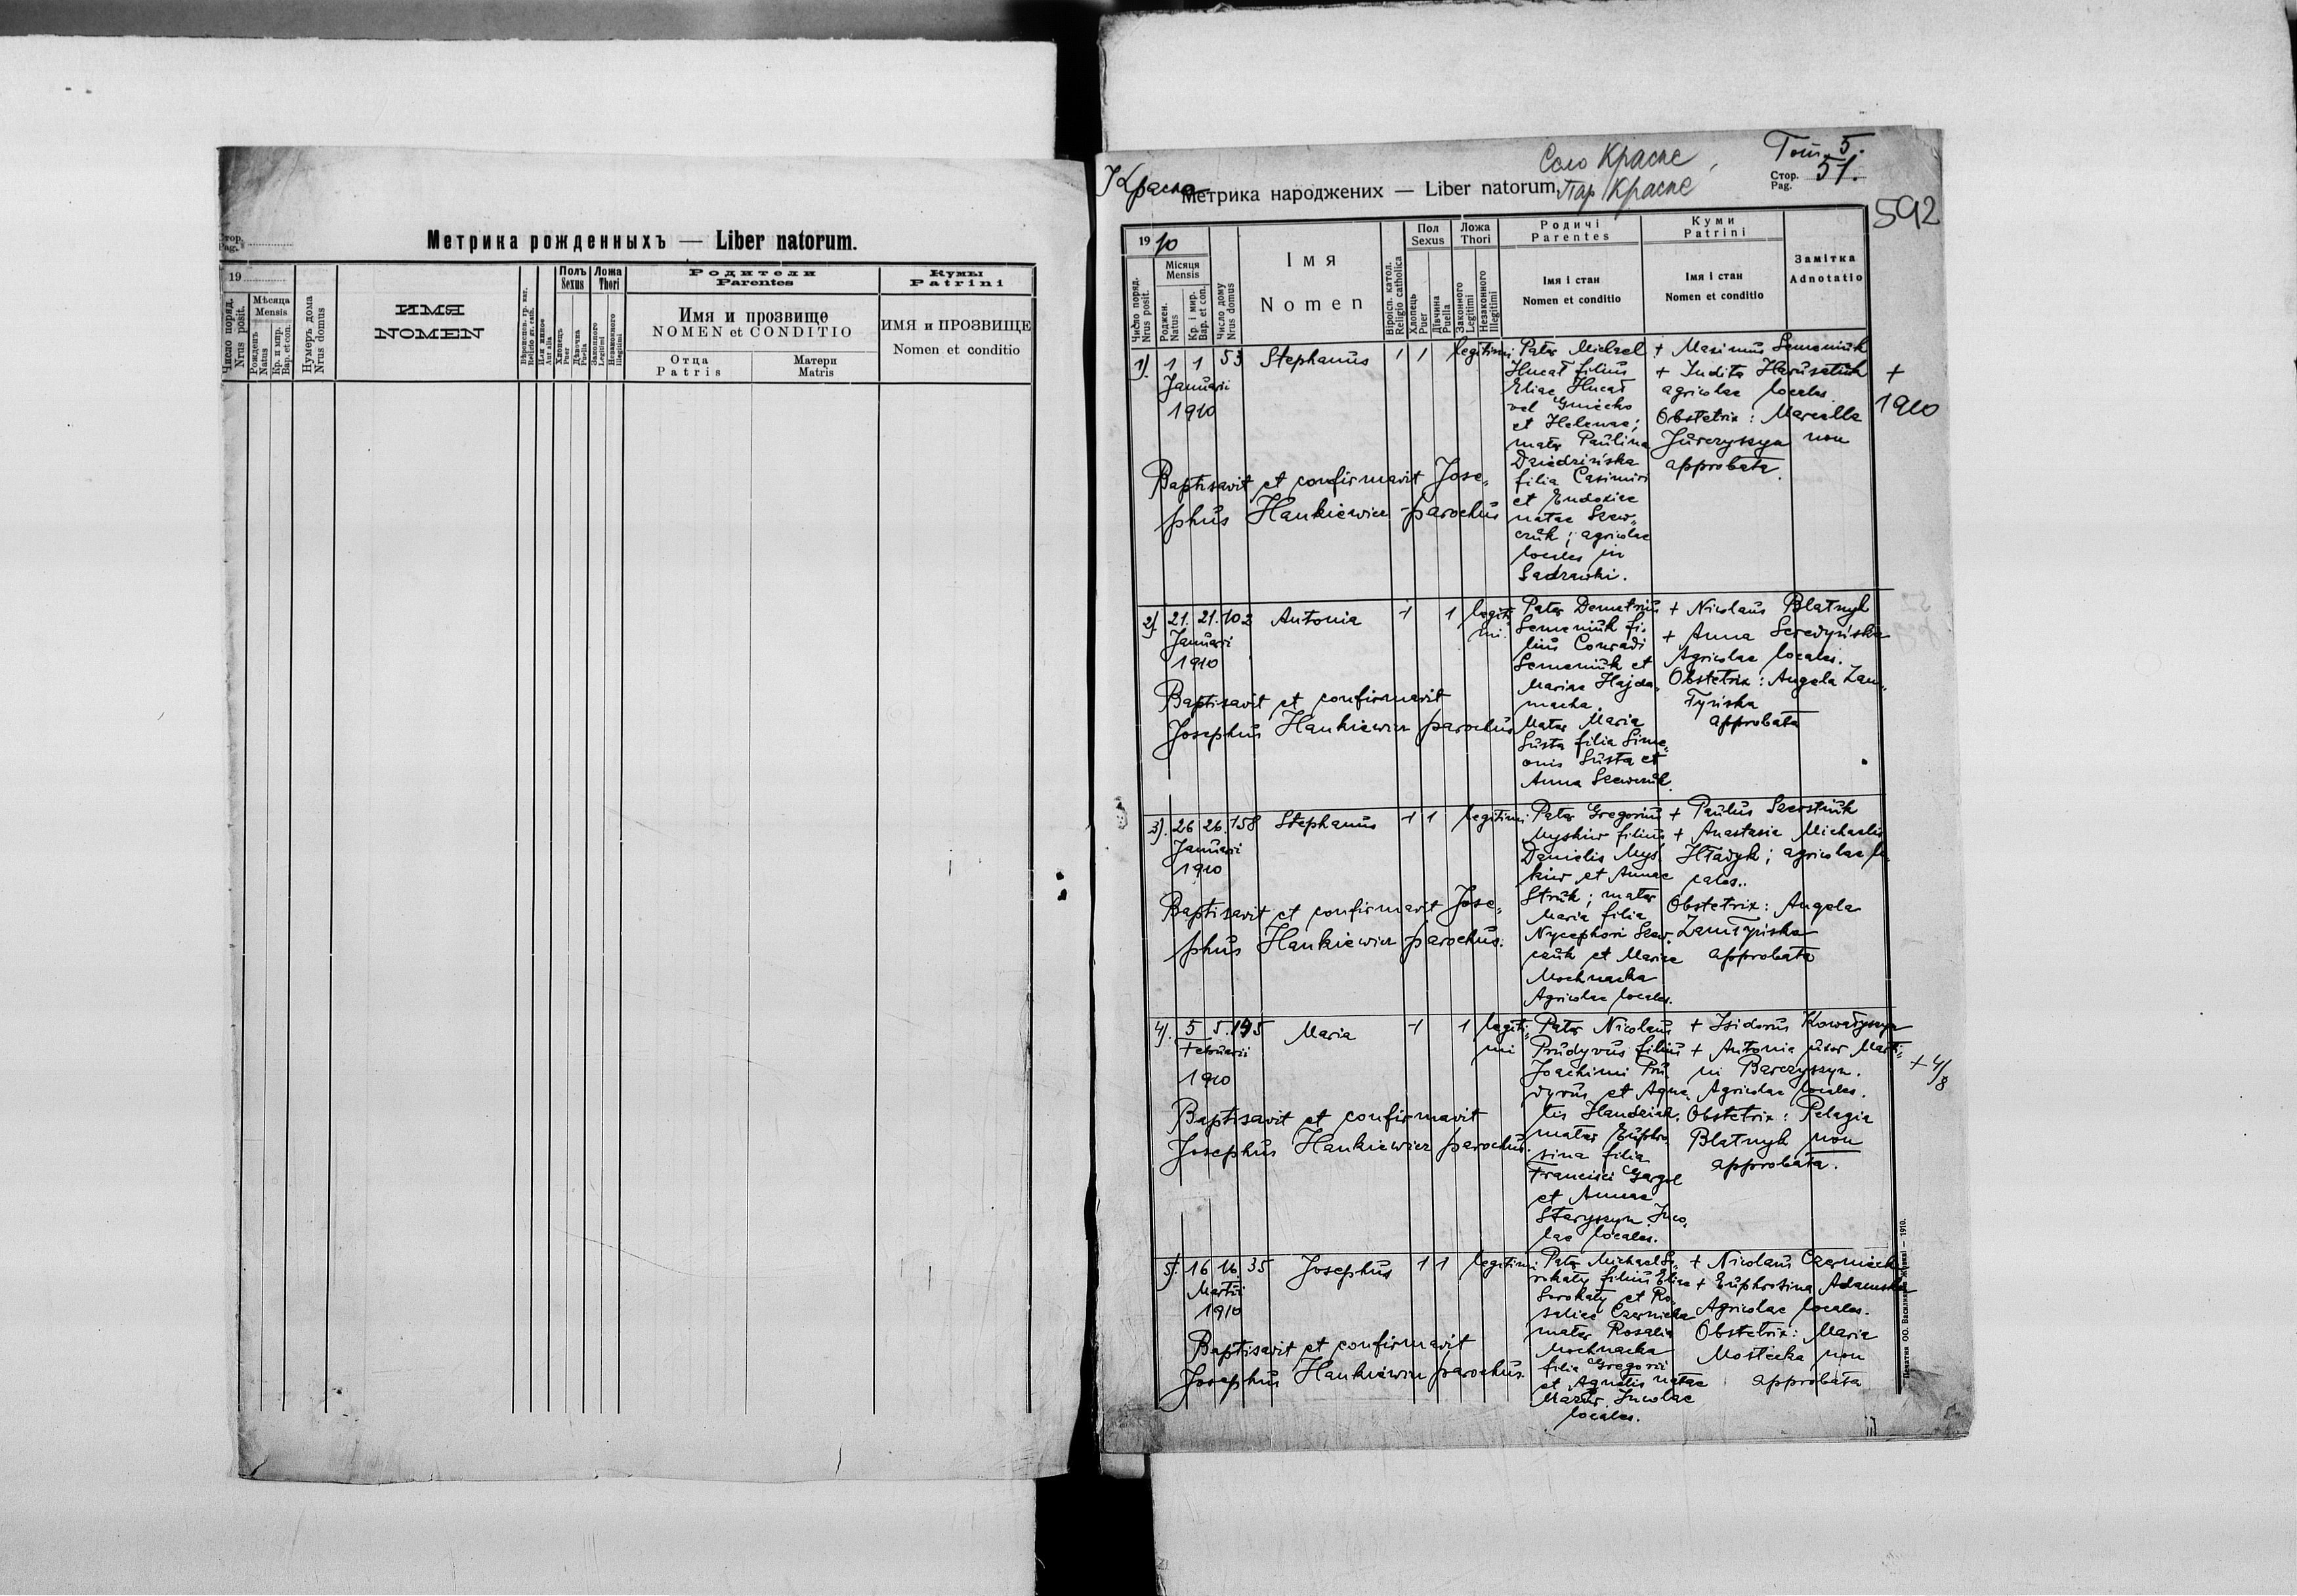 Стор.
Pag.
Метрика рожденныхъ — Liber natorum.
19
Число поряд.
Nrus posit.
Мѣсяца
Mensis
Рожденъ
Natus
Кр. и мир.
Bap. et con.
Нумеръ дома
Nrus domus
ИМЯ
NOMEN
Полъ
Sexus
Хлопецъ
Puer
Дѣвочка
Puella
Ложа
Thori
Законного
Legitimi
Незаконного
Illegitimi
Родители
Parentes
Имя и прозвище
NOMEN et CONDITIO
Отца
Patris
Матери
Matris
Кумы
Patrini
ИМЯ и ПРОЗВИЩЕ
Nomen et conditio
Село Красне
Том. 5.
Красна
Метрика народжених — Liber natorum.
Пар Красне
Стор.
Pag.
51.
592
1910
Число поряд.
Nrus posit.
Місяця
Mensis
Роджен.
Natus
Кр. і мир.
Bap. et con.
Число дому
Nrus domus
Імя
Nomen
Віроісп. катол.
Religio catholica
Пол
Sexus
Хлопець
Puer
Дівчина
Puella
Ложа
Thori
Законного
Legitimi
Незаконного
Illegitimi
Родичі
Parentes
Імя і стан
Nomen et conditio
Куми
Patrini
Імя і стан
Nomen et conditio
Замітка
Adnotatio
1). 1 1 53 Stephanus 1 1 legitimi
Januarii
1910
Pater Michael
Hucał filius
Eliae Hucał
vel Gniecko
et Helenae;
mater Paulina
Dziedzińska
filia Casimiri
et Eudoxiae
natae Szew„
czuk; agricolae
locales in
Sadzawki.
+ Maximus Semeniuk
+ Judita Harasatiuk
agricolae locales
Obstetrix: Marcella
Jurczyszyn non
approbata.
+
1910
Baptisavit et confirmavit Jose„
phus Hankiewicz - parochus
2). 21. 21. 102 Antonia 1 1 legiti
mi.
Januarii
1910
Pater Demetrius
Semeniuk fi„
lius Conradi
Semeniuk et
Mariae Hajda„
macha.
Mater Maria
Susta filia Sime„
onis Susta et
Anna Szewczuk.
+ Nicolaus Blatnyk
+ Anna Seredyńska
Agricolae locales.
Obstetrix: Angela Zam„
łyńska
approbata
Baptisavit et confirmavit
Josephus Hankiewicz parochus
3). 26 26. 158 Stephanus 1 1 legitimi
Januarii
1910
Pater Gregorius
Myskiw filius
Danielis Mys„
kiw et Annae
Struk; mater
Maria filia
Nycephori Szew„
czuk et Mariae
Mochnacka
Agricolae locales.
+ Paulus Szerstiuk
+ Anastasia Michaelis
Hładyk; agricolae lo
cales..
Obstetrix: Angela
Zamłyńska
approbata
Baptisavit et confirmavit Jose„
phus Hankiewicz parochus.
4). 5 5. 195 Maria 1 1 legiti„
mi
Februarii
1910
Pater Nicolaus
Prudyvus filius
Joachimi Pru„
dyvus et Agna„
tis Handziak.
mater Euphro„
sina filia
Francisci Gargol
et Annae
Staryszyn. Inco„
lae locales.
+ Isidorus Kowałyszyn
+ Antonia uxor Marti„
ni Barczyszyn.
Agricolae locales.
Obstetrix: Pelagia
Blatnyk non
approbata.
+ 4/8
Baptisavit et confirmavit
Josephus Hankiewicz parochus
5). 16 16. 35 Josephus 1 1 legitimi
Martii
1910
Pater Michael So„
rokaty filius Eliae
Sorokaty et Ro„
saliae Czarnicka
mater Rosalia
Mochnacka
filia Gregorii
et Agnetis natae
Mazur. Incolae
locales.
+ Nicolaus Czarniecki
+ Euphrosina Adamska
Agricolae locales.
Obstetrix: Maria
Mostecka non
approbata
Baptisavit et confirmavit
Josephus Hankiewicz parochus.